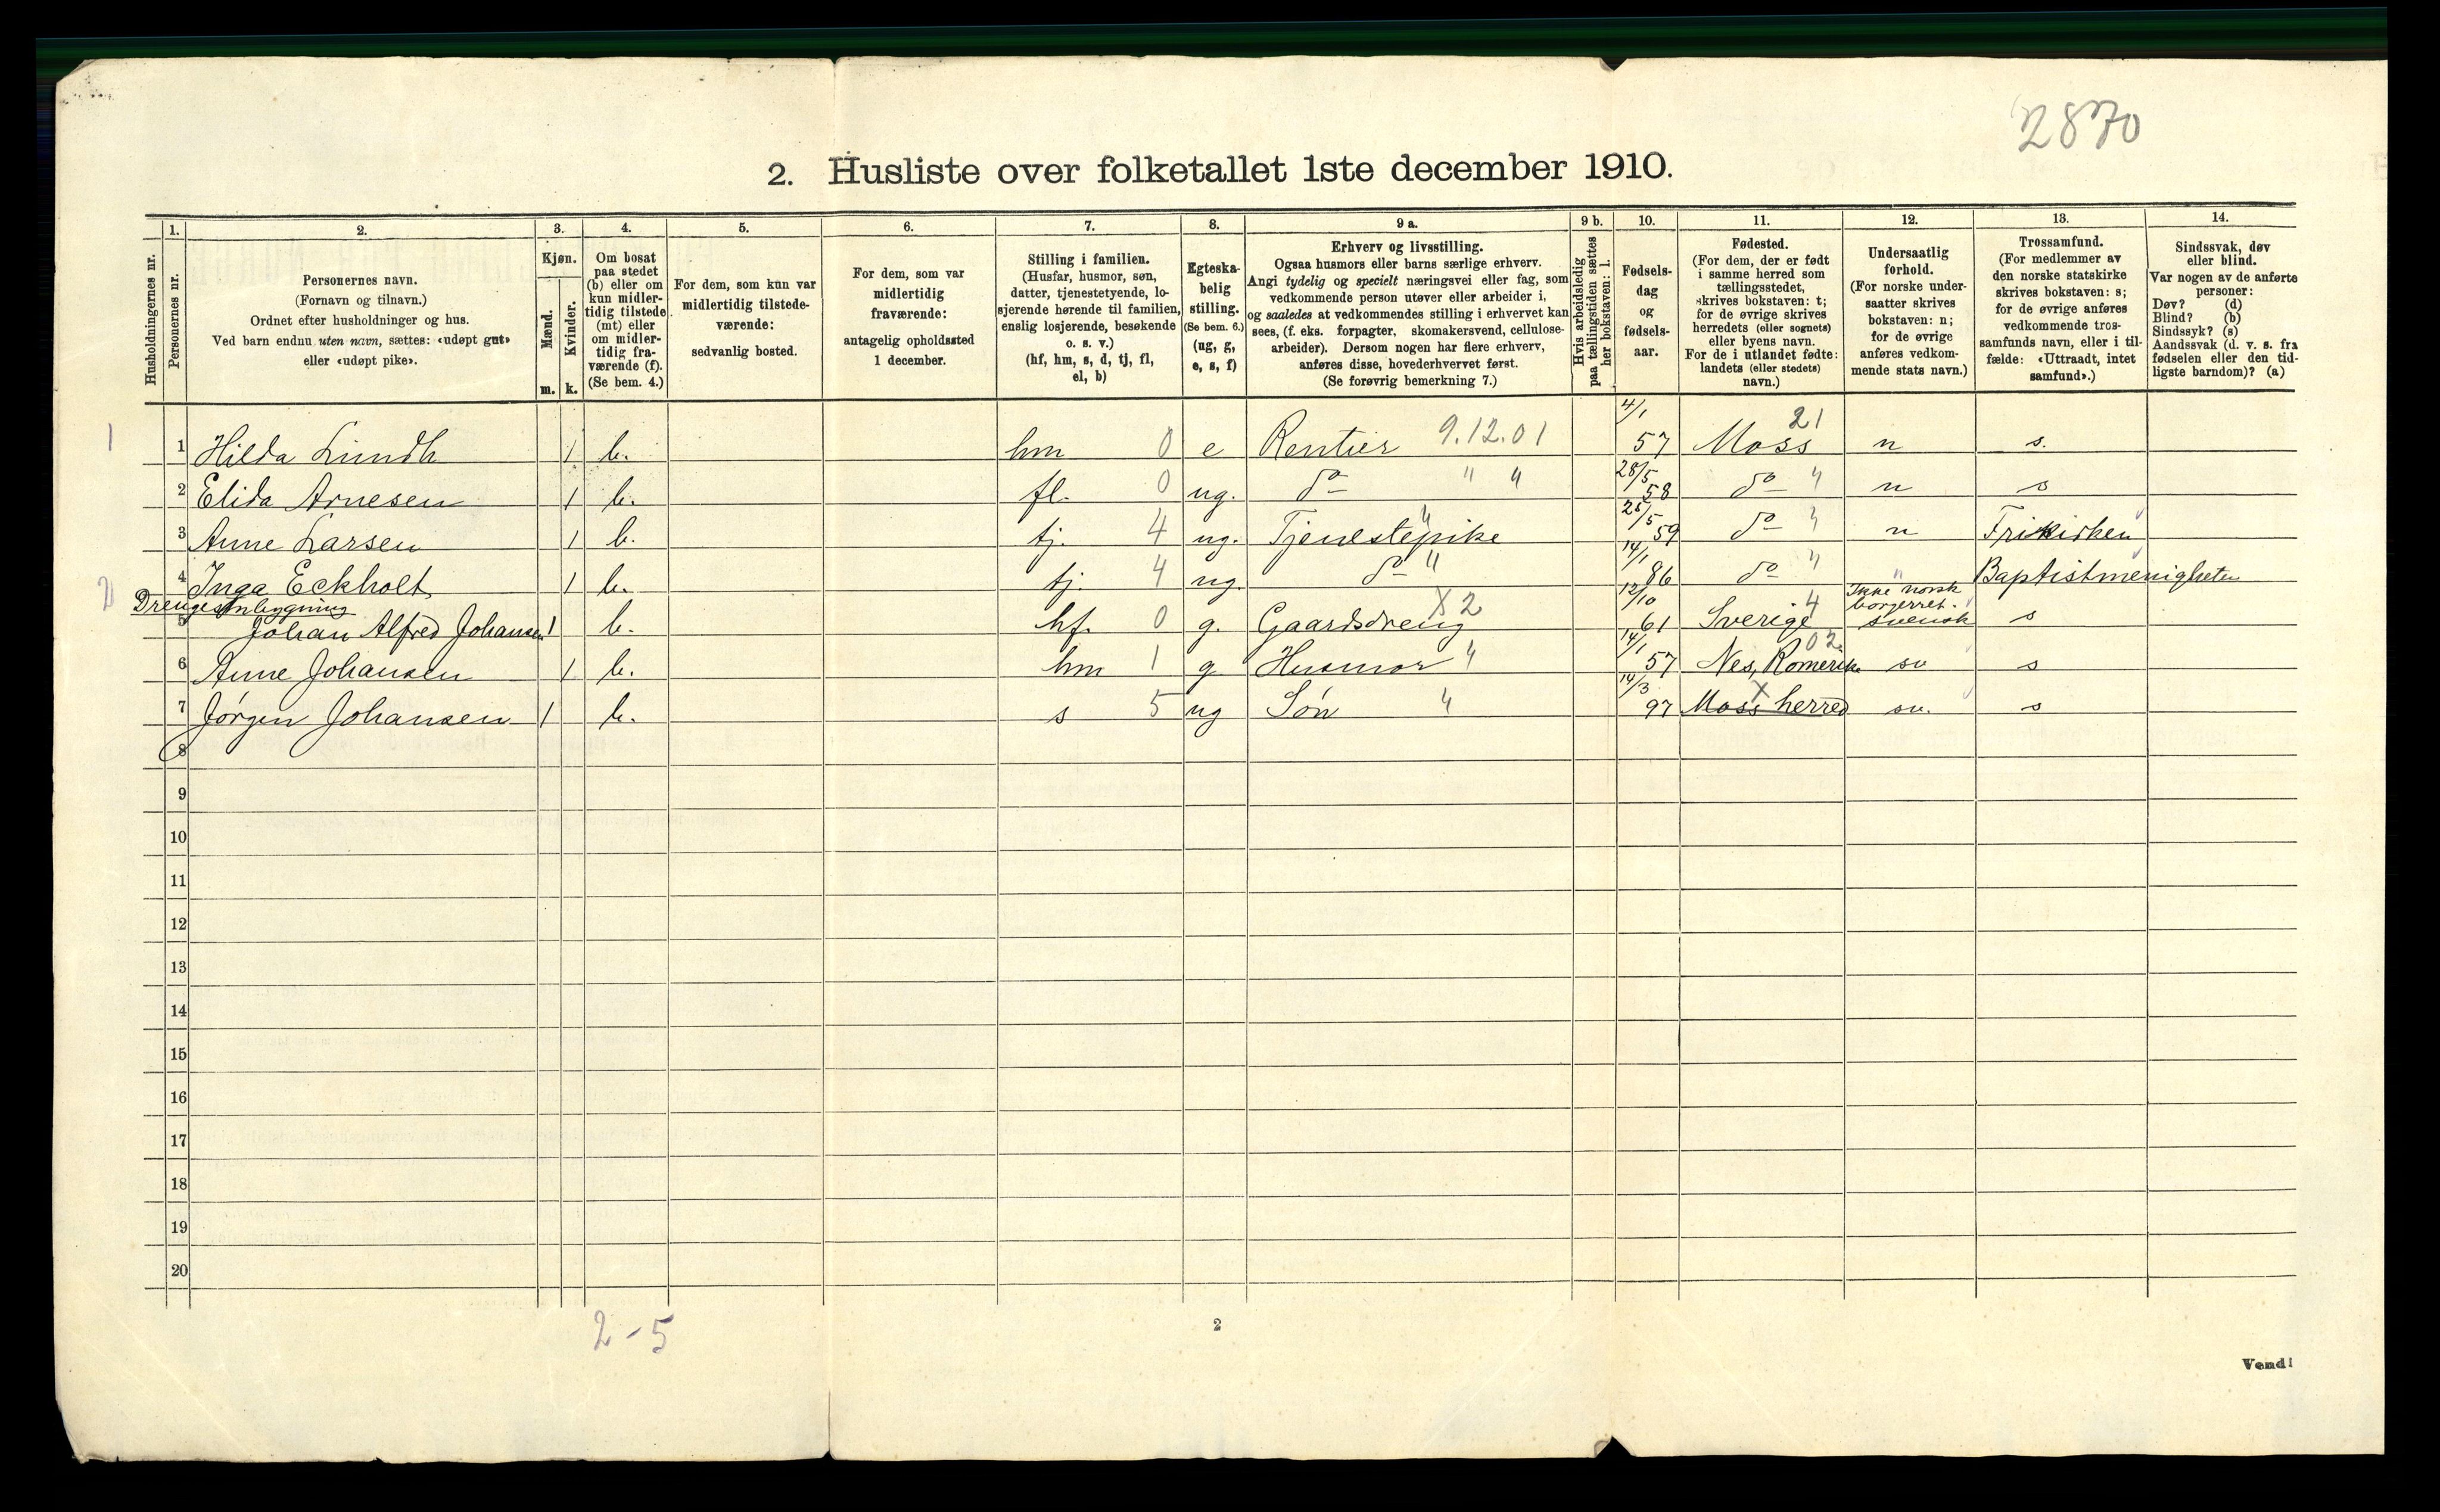 2870
2. Husliste over folketallet 1ste december 1910.
Husholdningernes nr.
1.
Personernes nr.
2.
Personernes navn.
(Fornavn og tilnavn.)
Ordnet efter husholdninger og hus.
Ved barn endnu uten navn, sættes: «udøpt gut»
eller «udøpt pike».
3.
Kjøn.
Mænd.
Kvinder.
m. k.
4.
Om bosat
paa stedet
(b) eller om
kun midler-
tidig tilstede
(mt) eller
om midler-
tidig fra-
værende (f).
(Se bem. 4.)
5.
For dem, som kun var
midlertidig tilstede-
værende:
sedvanlig bosted.
6.
For dem, som var
midlertidig
fraværende:
antagelig opholdssted
1 december.
7.
Stilling i familien.
(Husfar, husmor, søn,
datter, tjenestetyende, lo-
sjerende hørende til familien,
enslig losjerende, besøkende
o. s. v.)
(hf, hm, s, d, tj, fl,
el, b)
8.
Egteska-
belig
stilling.
(Se bem. 6.)
(ug, g,
e, s, f)
9 a.
Erhverv og livsstilling.
Ogsaa husmors eller barns særlige erhverv.
Angi tydelig og specielt næringsvei eller fag, som
vedkommende person utøver eller arbeider i,
og saaledes at vedkommendes stilling i erhvervet kan
sees, (f. eks. forpagter, skomakersvend, cellulose-
arbeider). Dersom nogen har flere erhverv,
anføres disse, hovederhvervet først.
(Se forøvrig bemerkning 7.)
9 b.
Hvis arbeidsledig
paa tællingstiden sættes
her bokstaven: l.
10.
Fødsels-
dag
og
fødsels-
aar.
11.
Fødested.
(For dem, der er født
i samme herred som
tællingsstedet,
skrives bokstaven: t;
for de øvrige skrives
herredets (eller sognets)
eller byens navn.
For de i utlandet fødte:
landets (eller stedets)
navn.)
12.
Undersaatlig
forhold.
(For norske under-
saatter skrives
bokstaven: n;
for de øvrige
anføres vedkom-
mende stats navn.)
13.
Trossamfund.
(For medlemmer av
den norske statskirke
skrives bokstaven: s;
for de øvrige anføres
vedkommende tros-
samfunds navn, eller i til-
fælde: «Uttraadt, intet
samfund».)
14.
Sindssvak, døv
eller blind.
Var nogen av de anførte
personer:
Døv? (d)
Blind? (b)
Sindssyk? (s)
Aandssvak (d. v. s. fra
fødselen eller den tid-
ligste barndom)? (a)
1 1 Hilda Lundh 1 b. hm 0 e Rentier 9.12.01 4/1 57 Moss 21 n s.
2 Elida Arnesen 1 b. fl. 0 ug. do " " 28/5 58 do " n s
3 Anne Larsen 1 b. tj. 4 ug. Tjenestepike " 25/5 59 do " n Frikirken
4 Inga Eckholt 1 b. tj. 4 ug. do " 14/1 86 do " " Baptistmenigheten
2 Drengestubygning
5 Johan Alfred Johansen 1 b. hf. 0 g. Gaardsdreng X2 12/10 61 Sverige 4 Ikke norsk borgerret. svensk s
6 Anne Johansen 1 b. hm 1 g Husmor " 14/1 57 Nes, Romerike 02 sv s
7 Jørgen Johansen 1 b. s 5 ug Søn " 14/3 97 Moss herred X sv. s
8
9
10
11
12
13
14
15
16
17
18
19
20
2-5
2
Vend!